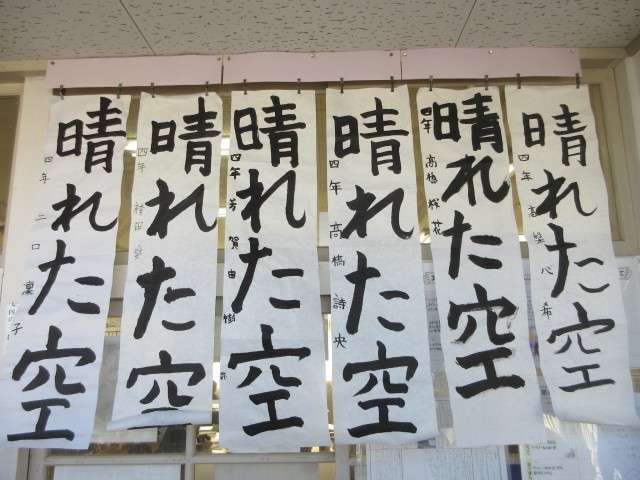 晴れた空
四年 二口 凜
晴れた空
四年
晴れた空
四年 芳賀由樹
晴れた空
四年 高橋詩央
晴れた空
四年 高橋 花
晴れた空
四年 高梁心希